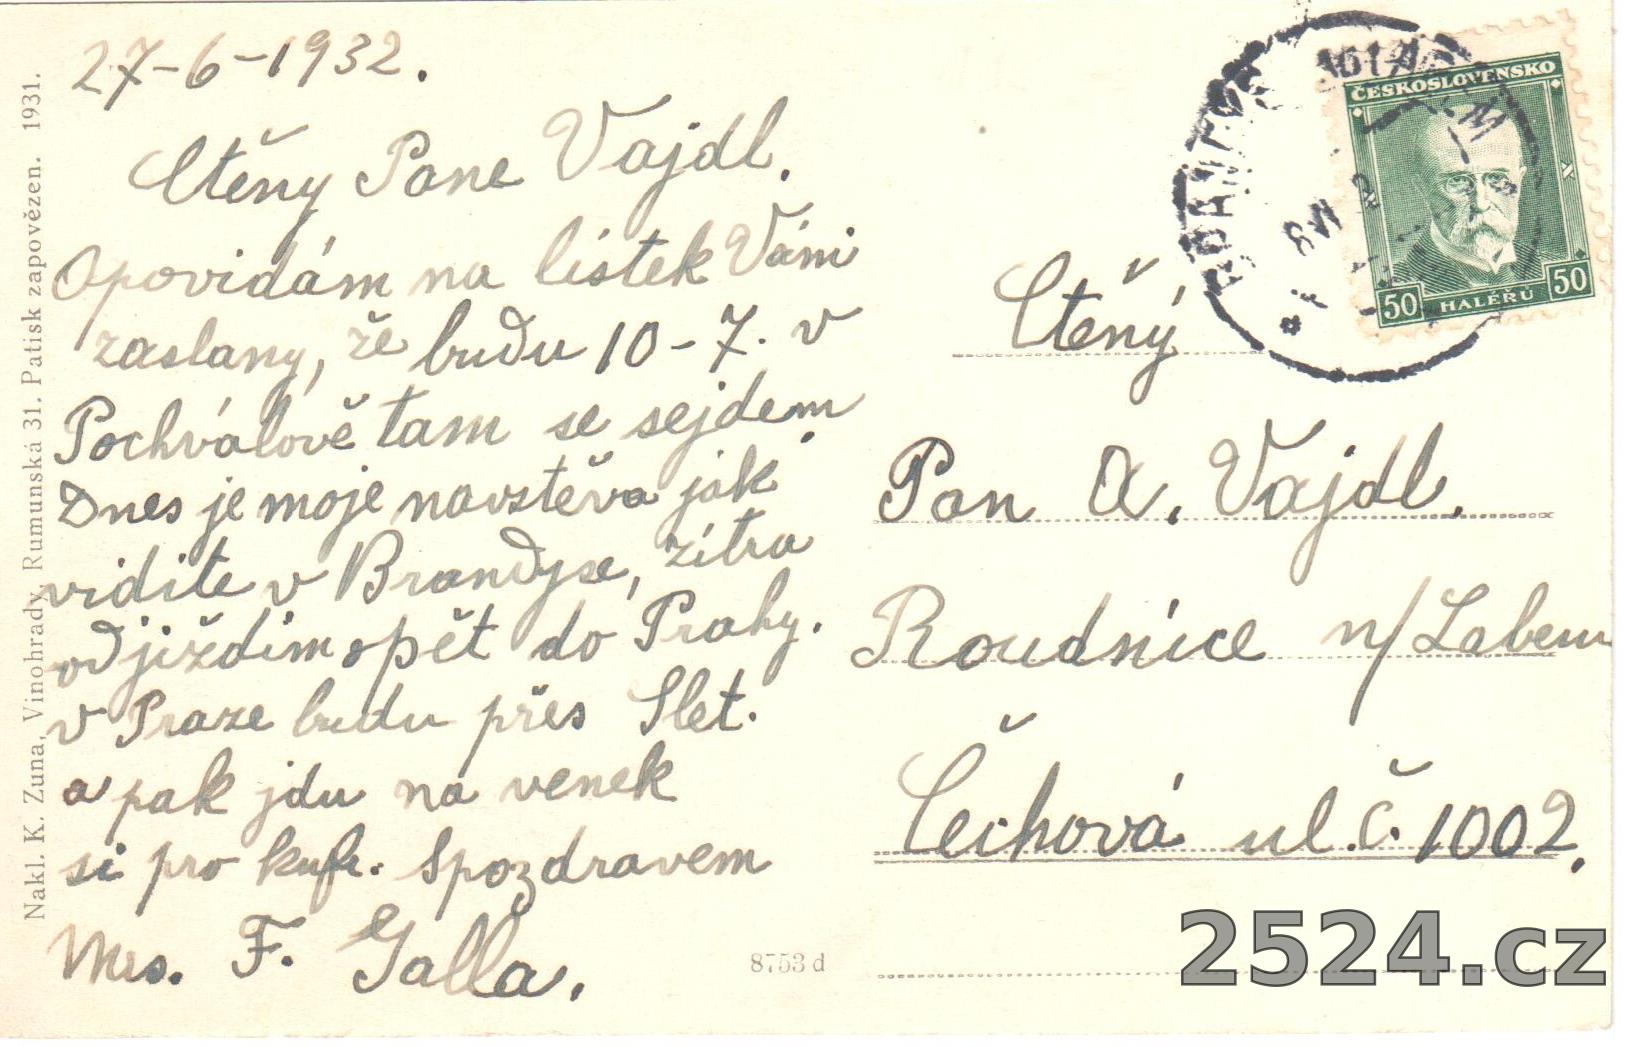 27-6-1932.
Ctěny Pane Vajdl.
Opovidám na lístek Vámi
zaslany, že budu 10-7. v
Pochválově tam se sejdem
Dnes je moje navštěva jak
vidite v Brandyse, zítra
odjiždim opět do Prahy.
v Praze budu přes Slet.
a pak jdu na venek
si pro kufr. Spozdravem
Mrs. F. Galla.
Nakl. K. Zuna, Vinohrady, Rumunská 31. Patisk zapovězen. 1931.
8753 d
ČESKOSLOVENSKO
50 HALÉŘŮ 50
Ctěný
Pan A. Vajdl.
Roudnice n/Labem
Čechová ul. č. 1002.
2524.cz